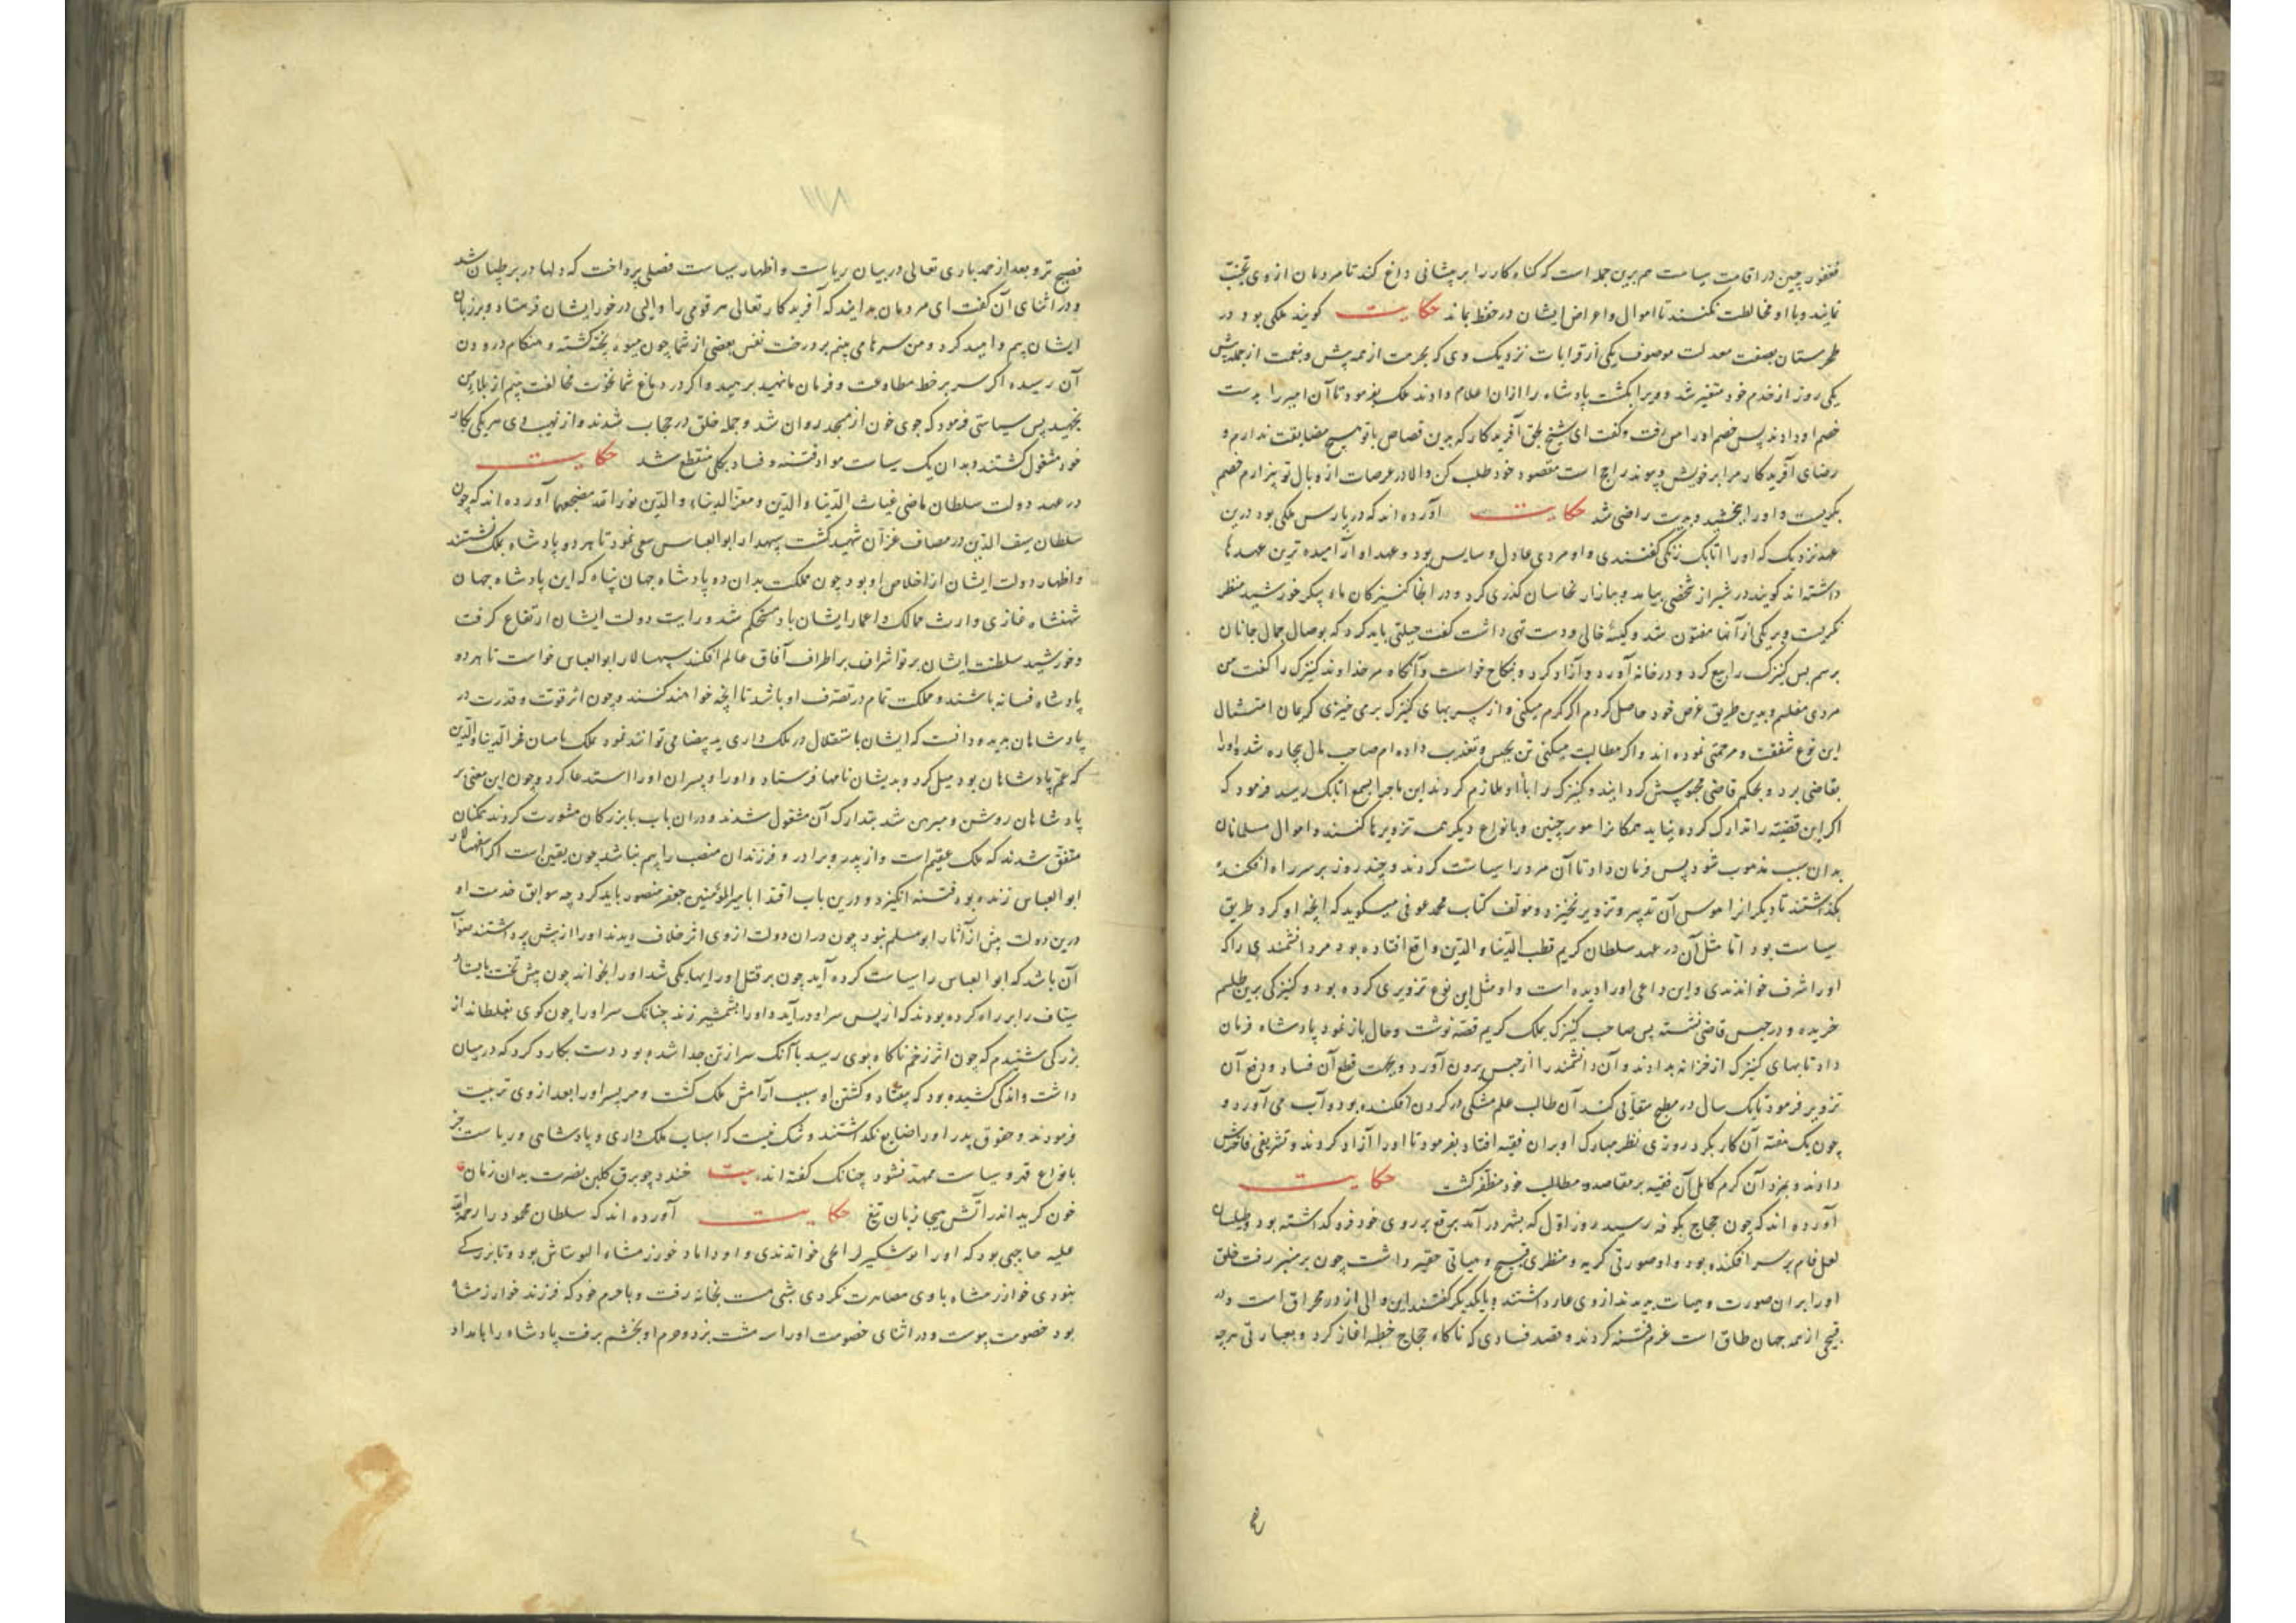 فغفور چین در اقامت سیاست هم برین جمله است که کناه کار را بر پیشانی داغ کند تا مردمان از وی تجنب
نمایند و با او مخالطت نکنند تا اموال و اعراض ایشان در حفظ بماند حکایت کویند ملکی بود در
طبرستان بصفت معدلت موصوف یکی از قرابات نزدیک وی که بحرمت از همه پیش و بنعمت از جمله بیش
یکی روز از خدم خود متغیر شد و ویرا بکشت پادشاه را ازان اعلام دادند ملک بفرمود تا آن امیر را بدست
خصم او دادند پس خصم او را می رفت و کفت ای شیخ بحق آفریدکار که بدین قصاص با تو هیچ مضایقت ندارم و
رضای آفریدکار مرا بر خویش و پیوند راجح است مقصود خود طلب کن والا در عرصات از وبال تو بیزارم خصم
بکریست و او را ببخشید و بدیت راضی شد حکایت آورده اند که در پارس ملکی بود درین
عهد نزدیک که او را اتابک زنکی کفتندی و او مردی عادل و سایس بود و عهد او آرامیده ترین عهدها
داشته اند کویند در شیراز شخصی بیامد و ببازار نخاسان کذری کرد و در انجا کنیزکان ماه پیکر خورشید منظر
نکریست و بر یکی از آنها مفتون شد و کیسهٔ خالی و دست تهی داشت کفت حیلتی باید کرد که بوصال جمال جانان
برسم پس کنیزک را بیع کرد و در خانه آورد و آزاد کرد و بنکاح خواست و آنکاه مر خداوند کنیزک را کفت من
مردی مفلسم و بدین طریق غرض خود حاصل کردم اکر کرم میکنی و از سر بهای کنیزک بر می خیزی کریمان امتثال
این نوع شفقت و مرحمتی نموده اند و اکر مطالبت میکنی تن بحبس و تعذیب داده ام صاحب مال بیچاره شد و او را
بقاضی برد و بحکم قاضی محبوس کردانیدند و کنیزک را با او ملازم کردند این ماجرا بسمع اتابک رسید فرمود که
اکر این قضیه را تدارک کرده نیاید همکانرا موسی چنین و بانواع دیکر هست تزویرها کنند و اموال مسلمانان
بدان سبب منهوب شود پس فرمان داد تا آن مرد را سیاست کردند و چند روز بر سر راه افکنده
بکذاشتند تا دیکرانرا هوس آن تدبیر و تزویر نخیزد و مؤلف کتاب محمد عوفی میکوید که انچه او کرد طریق
سیاست بود اما مثل آن در عهد سلطان کریم قطب الدنیا و الدین واقع افتاده بود مرد دانشمندی را که
او را شرف خواندندی و این داعی او را دیده است و او مثل این نوع تزویری کرده بود و کنیزکی برین طلسم
خریده و در حبس قاضی نشسته پس صاحب کنیزک بملک کریم قصه نوشت و حال باز نمود پادشاه فرمان
داد تا بهای کنیزک از خزانه بدادند و آن دانشمند را از حبس برون آورد و بجهت قطع آن فساد و دفع آن
تزویر فرمود تا یک سال در مطبخ سقایی کند آن طالب علم مشکی در کردن افکنده بود و آب می آورد و
چون یک هفته آن کار بکرد روزی نظر مبارک او بران فقیه افتاد بفرمود تا او را آزاد کردند و تشریفی فاخرش
دادند و بمزد آن کرم کامل آن فقیه بر مقاصد و مطالب خود مظفر کشت حکایت
آورده اند که چون حجاج بکوفه رسید روز اول که بشهر در آمد برقع بر روی خود فرو کذاشته بود و طیلسان
لعل فام بر سر افکنده بود و او صورتی کریه و منظری قبیح و هیاتی حقیر داشت چون بر منبر رفت خلق
او را بران صورت و هیات بدیدند از وی عار داشتند و با یکدیکر کفتند این والی از در محراق است و در
قبیحی از همه جهان طاق است عزم فتنه کردند و قصد فسادی که ناکاه حجاج خطبه آغاز کرد و بعبارتی هرچه
فصیح تر و بعد از حمد باری تعالی در بیان ریاست و اظهار سیاست فصلی پرداخت که دلها در بر طپان شد
و در اثنای آن کفت ای مردمان بدانید که آفریدکار تعالی هر قومی را والی در خور ایشان فرستاد و بر زبان
ایشان بیم و امید کرد و من سرها می بینم بر درخت نفس بعضی از شما چون میوهٔ پخته کشته و هنکام درودن
آن رسیده اکر سر بر خط مطاوعت و فرمان ما نهید برهید و اکر در دماغ شما نخوت مخالفت بینم از بلا
بجهید پس سیاستی فرمود که جوی خون از مسجد روان شد و جمله خلق در حجاب شدند و از نهیب وی هر یکی بکار
خود مشغول کشتند و بدان یک سیاست مواد فتنه و فساد بکلی منقطع شد حکایت
در عهد دولت سلطان ماضی غیاث الدنیا و الدین و معز الدنیا و الدین نور الله مضجعهما آورده اند که چون
سلطان سیف الدین در مصاف غزان شهید کشت سپهدار ابو العباس سعی نمود تا هر دو پادشاه بملک نشستند
و اظهار دولت ایشان از اخلاص او بود چون مملکت بدان دو پادشاه جهان پناه که این پادشاه جهان
شهنشاه غازی وارث ممالک و اعمار ایشان باد مستحکم شد و رایت دولت ایشان ارتفاع کرفت
و خورشید سلطنت ایشان پرتو اشراف بر اطراف آفاق عالم افکند سپهسالار ابو العباس خواست تا هر دو
پادشاه فسانه باشند و مملکت تمام در تصرف او باشد تا انچه خواهند کنند و چون اثر قوت و قدرت در
پادشاهان بدید و دانست که ایشان باستقلال در ملک داری ید بیضا می توانند نمود بملک بامیان فخر الدنیا و الدین
که عم پادشاهان بود میل کرد و بدیشان نامها فرستاد و او را و پسران او را استدعا کرد و چون این معنی بر
پادشاهان روشن و مبرهن شد بتدارک آن مشغول شدند و دران باب با بزرکان مشورت کردند همکنان
متفق شدند که ملک عقیم است و از پدر و برادر و فرزندان منصب را بیم نباشد چون یقین است اکر سپهسالار
ابو العباس زنده بود فتنه انکیزد و درین باب اقتدا بامیر المؤمنین جعفر منصور باید کرد چه سوابق خدمت او
درین دولت بیش از آثار ابو مسلم نبود چون دران دولت از وی اثر خلاف دیدند او را از پیش برداشتند صواب
آن باشد که ابو العباس را سیاست کرده آید چون بر قتل او رایها یکی شد او را بخواند چون پیش تخت بایستاد
سیاف را بر راه کرده بودند که از پس سر او در آید و او را بشمشیر زند چنانک سر او را چون کوی بغلطاند از
بزرکی شنیدم که چون اثر زخم ناکاه بوی رسید با آنک سر از تن جدا شده بود دست بکارد کرد که در میان
داشت و اندکی کشیده بود که بیفتاد و کشتن او سبب آرامش ملک کشت و مر پسر او را بعد از وی تربیت
فرمودند و حقوق پدر او را ضایع نکذاشتند و شک نیست که اسباب ملک داری و پادشاهی و ریاست جز
بانواع قهر و سیاست ممهد نشود چنانک کفته اند بیت خندد چو برق کلبن نصرت بدان زمان
خون کرید اندر آتش هیجا زبان تیغ حکایت آورده اند که سلطان محمود را رحمة الله
علیه حاجبی بود که او را خواندندی و او داماد خوارزمشاه التونتاش بود و تا بزرکی
بنودی خوارزمشاه با وی مصاهرت نکردی شبی مست بخانه رفت و با حرم خود که فرزند خوارزمشاه
بود خصومت پیوست و در اثنای خصومت او را سه مشت بزد و حرم او بخشم برفت پادشاه را بامداد